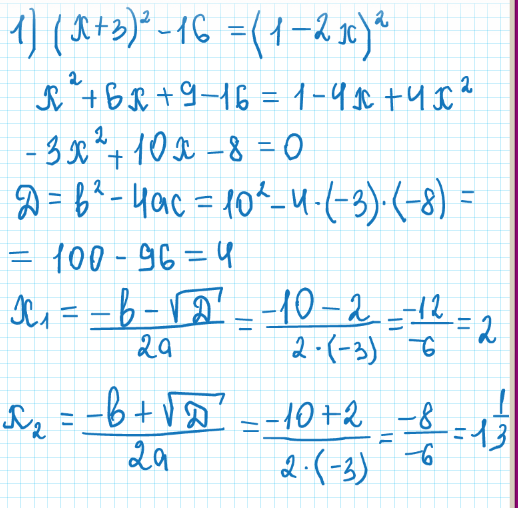 1) (x+3)² - 16 = (1-2x)²
x² + 6x + 9 - 16 = 1 - 4x + 4x²
-3x² + 10x - 8 = 0
D = b² - 4ac = 10² - 4·(-3)·(-8) =
= 100 - 96 = 4
x₁ = (-b - √D)/2a = (-10 - 2)/(2·(-3)) = -12/-6 = 2
x₂ = (-b + √D)/2a = (-10 + 2)/(2·(-3)) = -8/-6 = 1 1/3